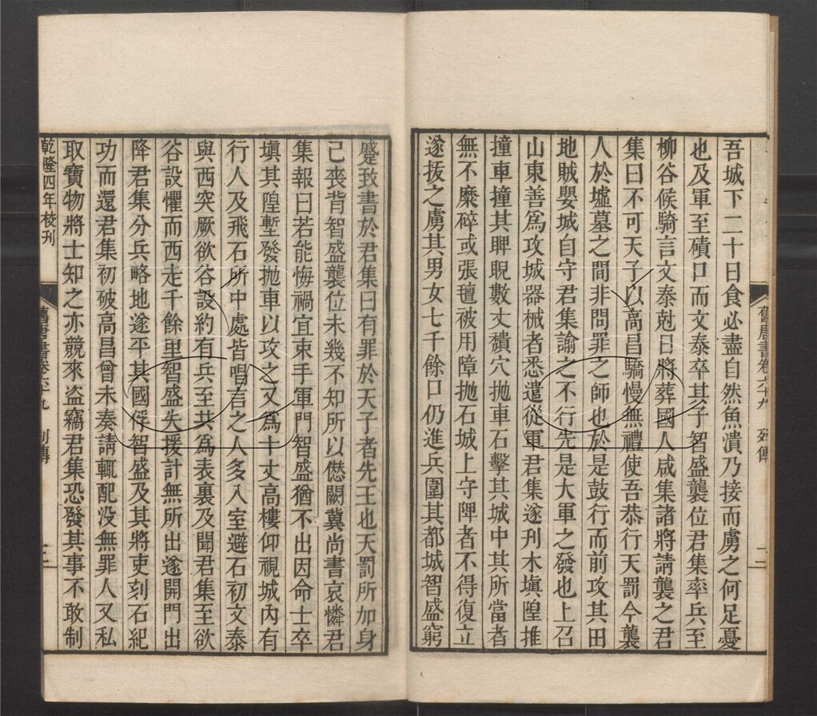 吾城下二十日食必盡自然魚潰乃接而虜之何足憂
也及軍至磧口而文泰卒其子智盛襲位君集率兵至
柳谷候騎言文泰尅日將葬國人咸集諸將請襲之君
集曰不可天子以高昌驕慢無禮使吾恭行天罰今襲
人於墟墓之間非問罪之師也於是鼓行而前攻其田
地賊嬰城自守君集諭之不行先是大軍之發也上召
山東善爲攻城器械者悉遣從軍君集遂刊木塡隍推
撞車撞其睥睨數丈穨穴抛車石擊其城中其所當者
無不糜碎或張氊被用障抛石城上守陴者不得復立
遂拔之虜其男女七千餘口仍進兵圍其都城智盛窮
舊唐書卷六十九 列傳 十二
蹙致書於君集曰有罪於天子者先王也天罰所加身
已喪背智盛襲位未幾不知所以愆闕冀尚書哀憐君
集報曰若能悔禍宜束手軍門智盛猶不出因命士卒
塡其隍塹發抛車以攻之又爲十丈高樓仰視城內有
行人及飛石所中處皆唱言之人多入室避石初文泰
與西突厥欲谷設約有兵至共爲表裏及聞君集至欲
谷設懼而西走千餘里智盛失援計無所出遂開門出
降君集分兵略地遂平其國俘智盛及其將吏刻石紀
功而還君集初破高昌曾未奏請輒配没無罪人又私
取寶物將士知之亦競來盗竊君集恐發其事不敢制
乾隆四年校刊 舊唐書卷六十九 列傳